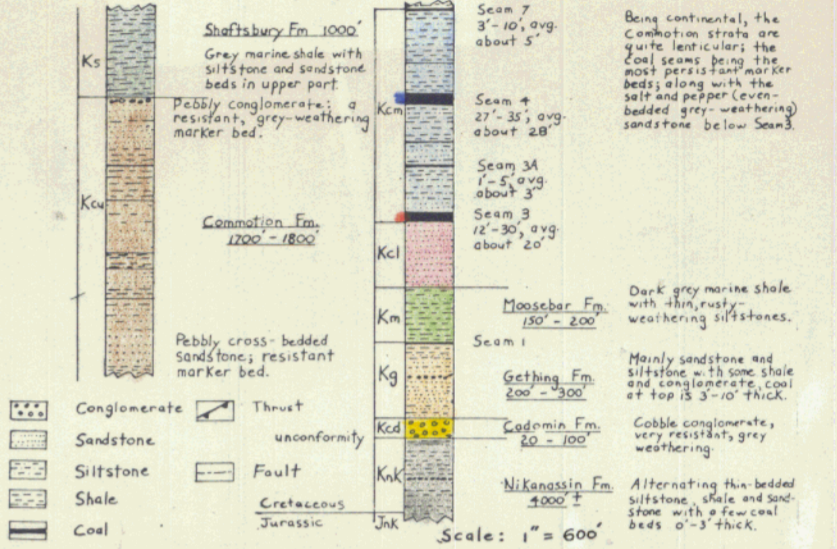 Ks
Shaftsbury Fm 1000'
Grey marine shale with
siltstone and sandstone
beds in upper part.
Pebbly conglomerate: a
resistant, grey-weathering
marker bed.
Kcu
Commotion Fm.
1700' - 1800'
Pebbly cross-bedded
sandstone; resistant
marker bed.
Conglomerate
Sandstone
Siltstone
Shale
Coal
Thrust
unconformity
Fault
Cretaceous
Jurassic
Kcm
Kcl
Km
Kg
Kcd
Knk
Jnk
Seam 7
3'-10', avg.
about 5'
Seam 4
27'-35', avg.
about 28'
Seam 3A
1'-5', avg.
about 3'
Seam 3
12'-30', avg.
about 20'
Moosebar Fm.
150' - 200'
Seam 1
Gething Fm.
200' - 300'
Cadomin Fm.
20 - 100'
Nikanassin Fm.
4000' ±
Scale: 1" = 600'
Being continental, the
Commotion strata are
quite lenticular; the
coal seams being the
most persistant marker
beds; along with the
salt and pepper (even-
bedded grey-weathering)
sandstone below Seam 3.
Dark grey marine shale
with thin, rusty-
weathering siltstones.
Mainly sandstone and
siltstone with some shale
and conglomerate, coal
at top is 3'-10' thick.
Cobble conglomerate,
very resistant, grey
weathering.
Alternating thin-bedded
siltstone, shale and sand-
stone with a few coal
beds 0'-3' thick.